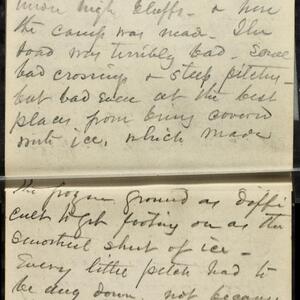 under high bluffs - & here
the camp was made. The
road was terribly bad. Some
bad crossings & steep pitches -
but bad even at the best
places from being covered
with ice, which made
the frozen ground as diffi
cult to get footing on as the
smoothest sheet of ice -
Every little pitch had to
be dug down not because